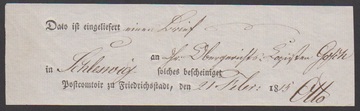 Dato ist eingeliefert einen Brief
an Hr. Obergerichts-Copiisten
in Schleswig solches bescheiniget
Postcomtoir zu Friedrichstadt, den 21 Febr. 18 Otto